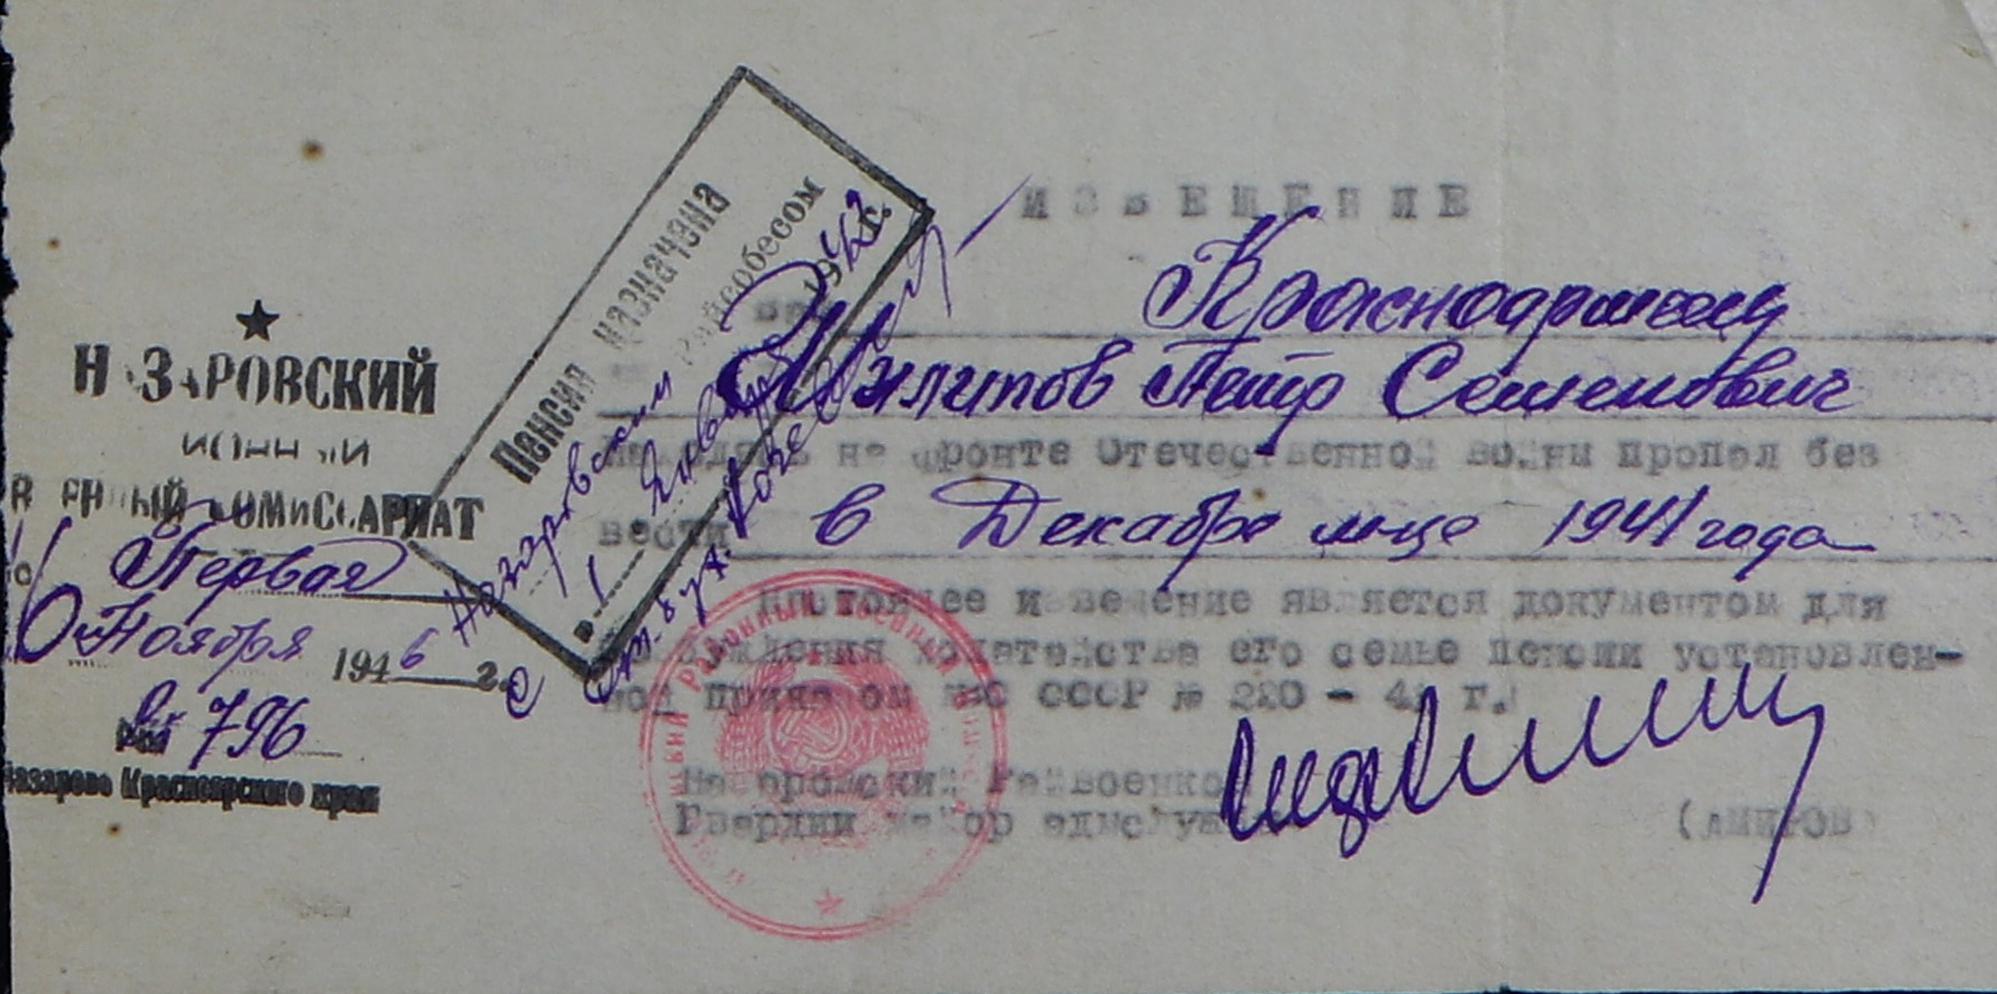 НАЗАРОВСКИЙ
РАЙОННЫЙ
ВОЕННЫЙ КОМИССАРИАТ
Первая
6 Ноября 1946 г.
№ 796
Назарово Красноярского края
Пенсия назначена
Назаровским Райсобесом
с 1 Января 1942 г.
ИЗВЕЩЕНИЕ
Ваш Красноармеец
Филипов Петр Семенович
находясь на фронте Отечественной войны пропал без
вести в Декабре м-це 1941 года
Настоящее извещение является документом для
возбуждения ходатайства его семье пенсии установлен-
ной приказом НКО СССР № 220 - 41 г.
Назаровский Райвоенком
Гвардии майор адмслужбы (АМИРОВ)